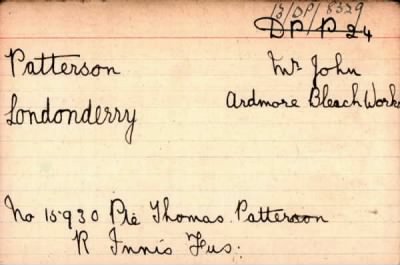 13/DP/8329
DP P 24
Patterson
Mr John
Londonderry
Ardmore Bleach Works
No 15930 Pte Thomas Patterson
R Innis Fus.